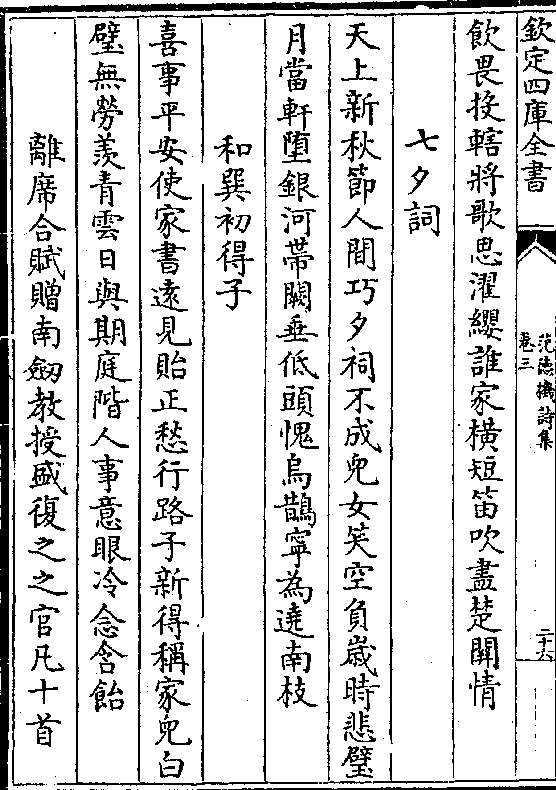 欽定四庫全書
范德機詩集
卷三
二十六
飲畏投轄將歌思濯纓誰家橫短笛吹盡楚關情
七夕詞
天上新秋節人間巧夕祠不成兒女笑空負歲時悲璧
月當軒墮銀河帶闕垂低頭愧烏鵲寧為遶南枝
和巽初得子
喜事平安使家書遠見貽正愁行路子新得稱家兒白
璧無勞羡青雲日與期庭階人事意眼冷念含飴
離席合賦贈南劒教授盛復之之官凡十首